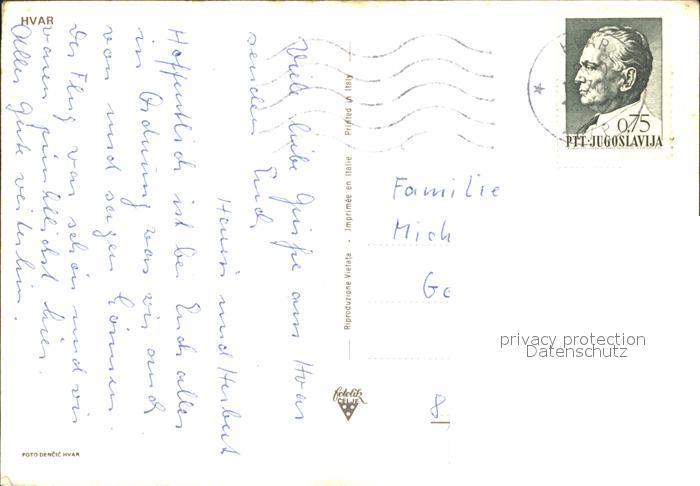 HVAR
Viele liebe Grüße aus Hvar
senden Euch
Hanni und Herbert
Hoffentlich ist bei Euch alles
in Ordnung was wir auch
von uns sagen können.
Der Flug war schön und wir
waren pünktlichst hier.
Alles gute weiterhin.
FOTO DENČIĆ HVAR
Riproduzione Vietata - Imprimée en Italie Printed in Italy
fotolik
CELJE
0,75
PTT-JUGOSLAVIJA
Familie
Mich
Ge
8
privacy protection
Datenschutz